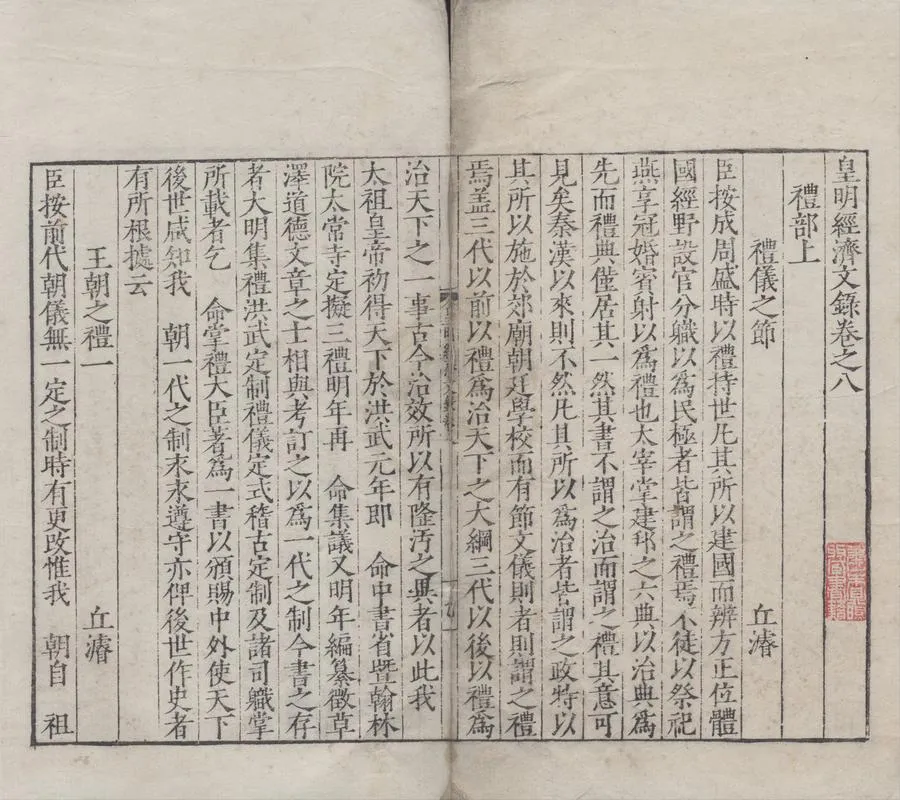 皇明經濟文錄卷之八
禮部上
禮儀之節 丘濬
臣按成周盛時以禮持世凡其所以建國而辨方正位體
國經野設官分職以為民極者皆謂之禮焉不徒以祭祀
燕享冠婚賓射以為禮也太宰掌建邦之六典以治典為
先而禮典僅居其一然其書不謂之治而謂之禮其意可
見矣秦漢以來則不然凡其所以為治者皆謂之政特以
其所以施於郊廟朝廷學校而有節文儀則者則謂之禮
焉盖三代以前以禮為治天下之大綱三代以後以禮為
治天下之一事古今治效所以有隆汚之異者以此我
太祖皇帝初得天下於洪武元年即 命中書省暨翰林
院太常寺定擬三禮明年再 命集議又明年編纂徵草
澤道德文章之士相與考訂之以為一代之制今書之存
者大明集禮洪武定制禮儀定式稽古定制及諸司職掌
所載者乞 命掌禮大臣著為一書以頒賜中外使天下
後世咸知我 朝一代之制永永遵守亦俾後世作史者
有所根據云
王朝之禮一 丘濬
臣按前代朝儀無一定之制時有更改惟我 朝自 祖